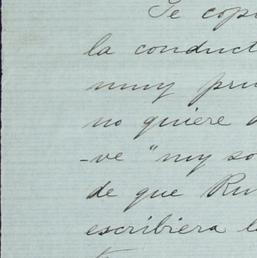 Te copi
la conduct
muy pru
no quiere
-ve "my so
de que Ru
escribiera l